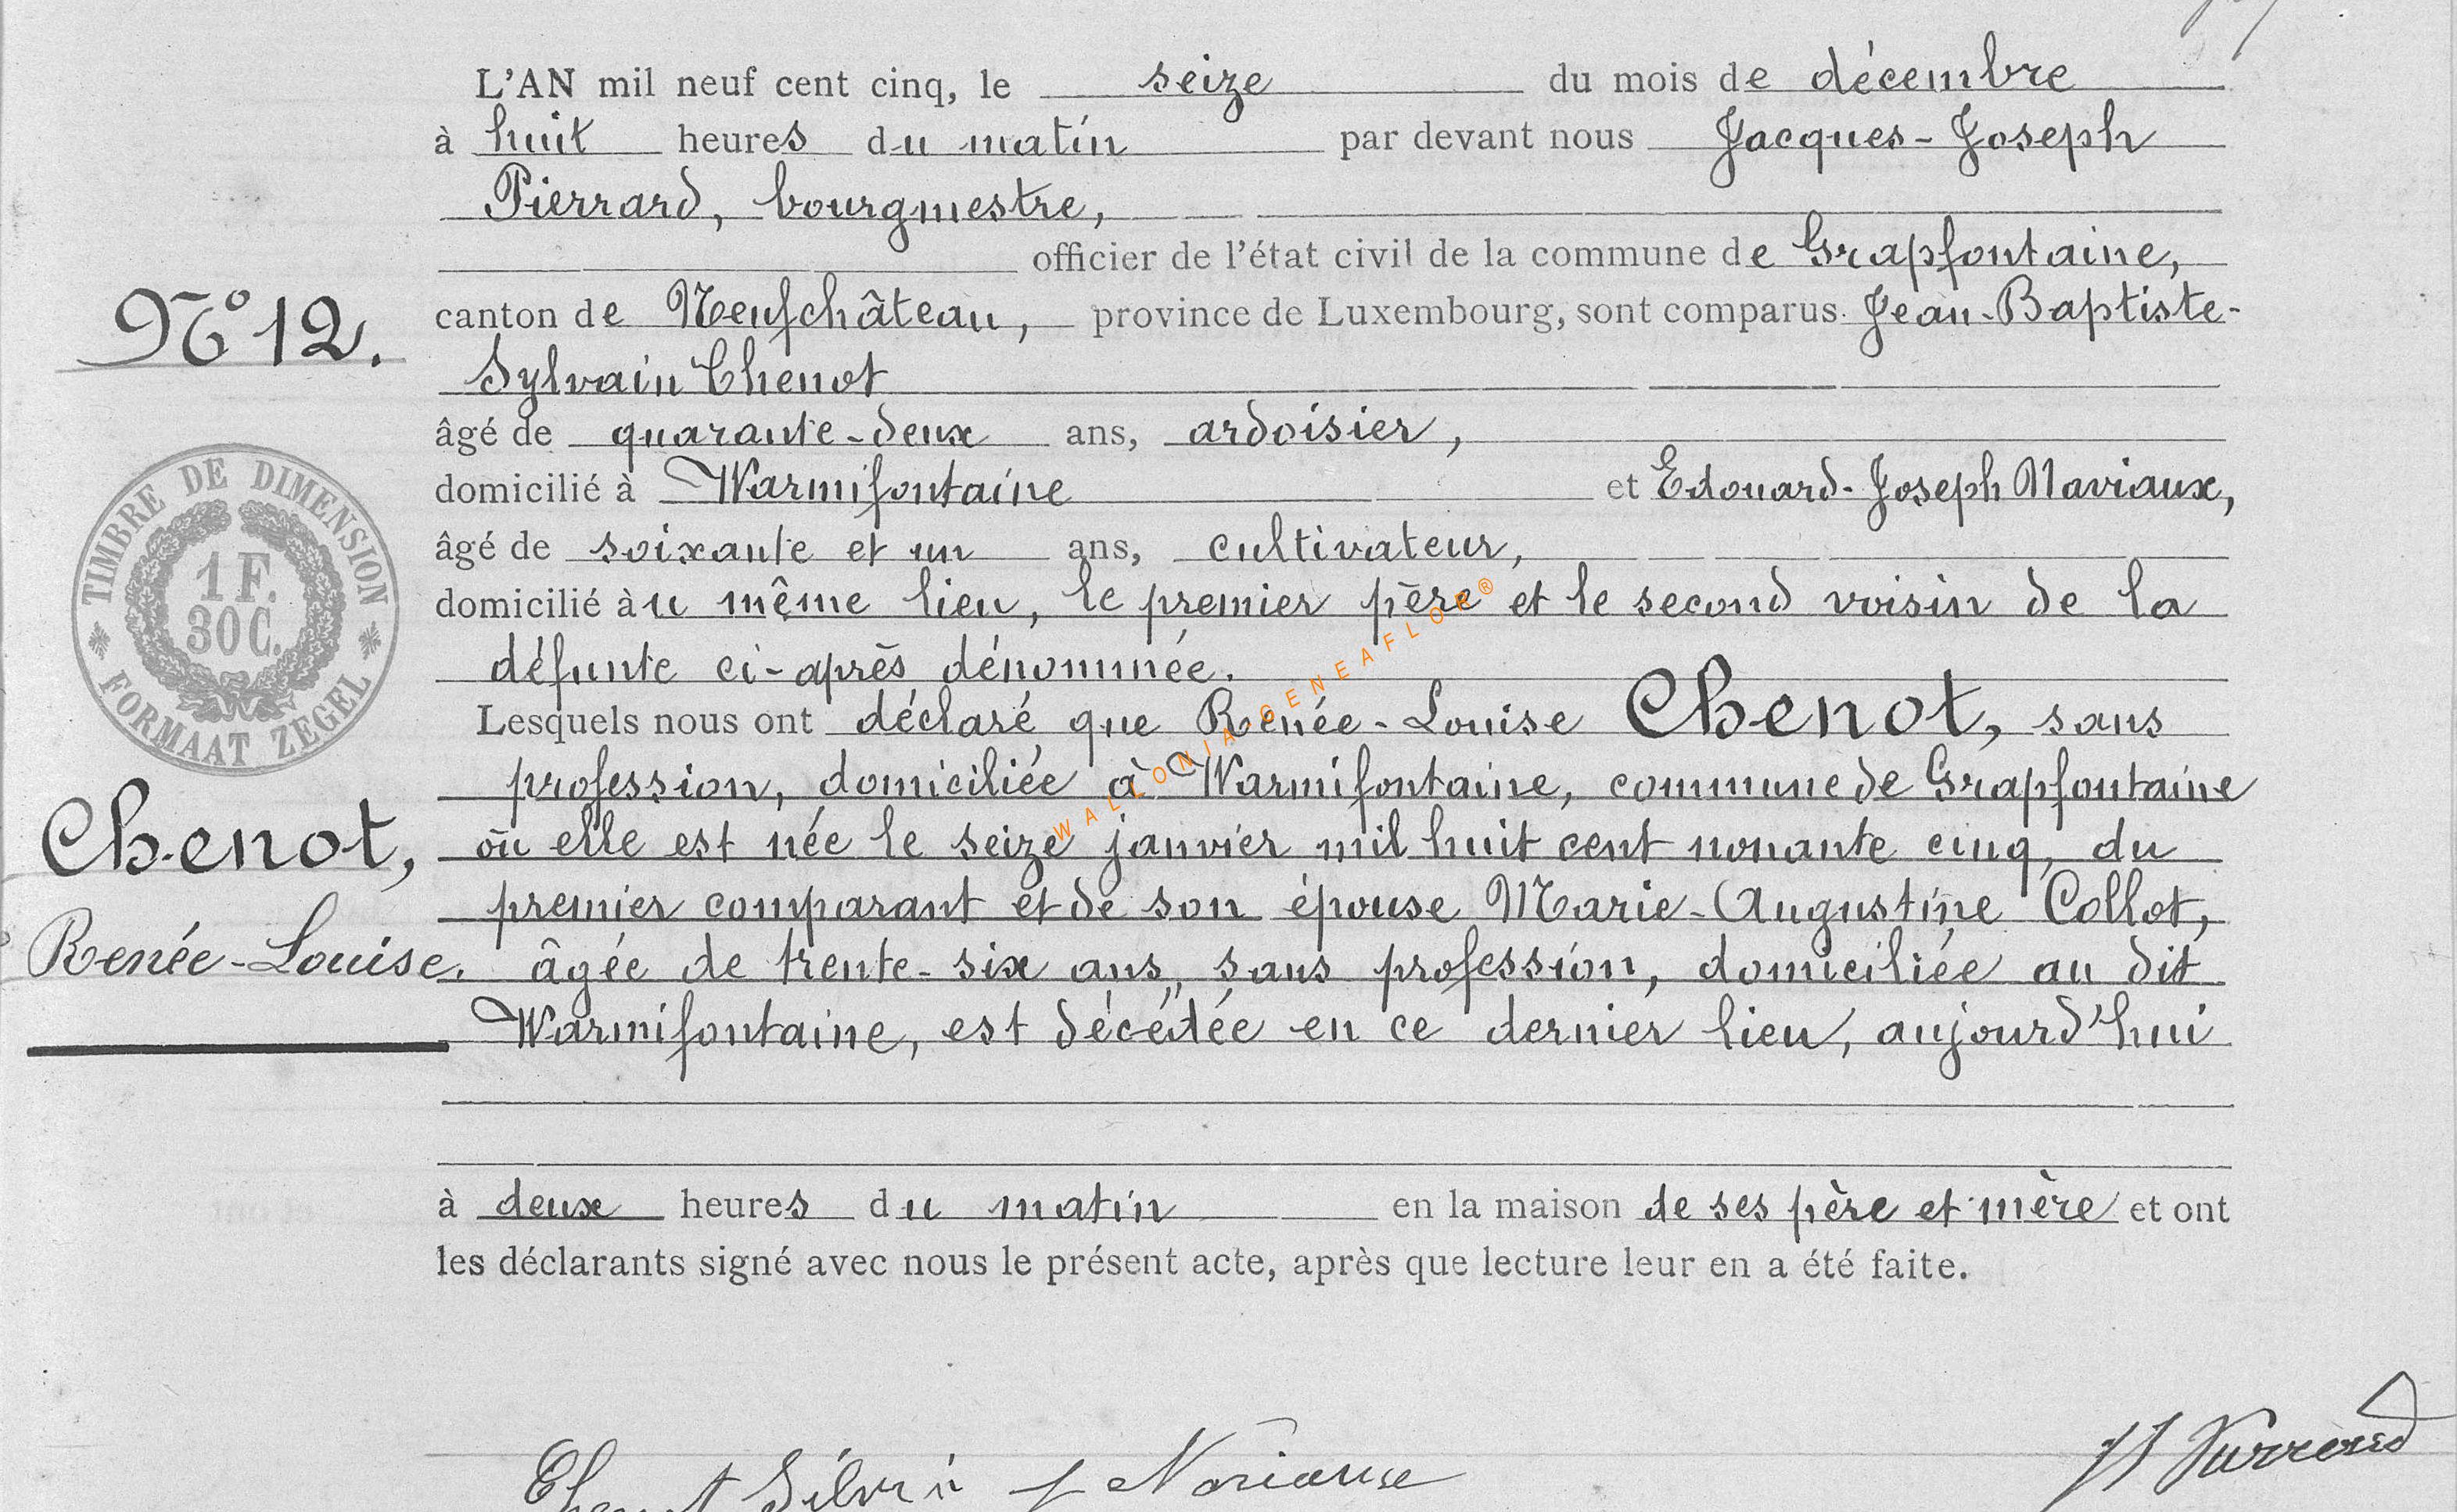 L'AN mil neuf cent cinq, le seize du mois de décembre
à huit heures du matin par devant nous Jacques-Joseph
Pierrard, bourgmestre,
officier de l'état civil de la commune de Grapfontaine,
N° 12.
canton de Neufchâteau, province de Luxembourg, sont comparus Jean-Baptiste-
Sylvain Chenot
âgé de quarante-deux ans, ardoisier,
domicilié à Warmifontaine et Edouard-Joseph Naviaux,
âgé de soixante et un ans, cultivateur,
domicilié au même lieu, le premier père et le second voisin de la
défunte ci-après dénommée.
TIMBRE DE DIMENSION
1 F.
30 C.
FORMAAT ZEGEL
Lesquels nous ont déclaré que Renée-Louise Chenot, sans
profession, domiciliée à Warmifontaine, commune de Grapfontaine
Chenot,
où elle est née le seize janvier mil huit cent nonante cinq, du
premier comparant et de son épouse Marie-Augustine Collot,
Renée-Louise.
âgée de trente-six ans, sans profession, domiciliée au dit
Warmifontaine, est décédée en ce dernier lieu, aujourd'hui
à deux heures du matin en la maison de ses père et mère et ont
les déclarants signé avec nous le présent acte, après que lecture leur en a été faite.
WALLONIA GENEAFLOR®
Chenot Silvin